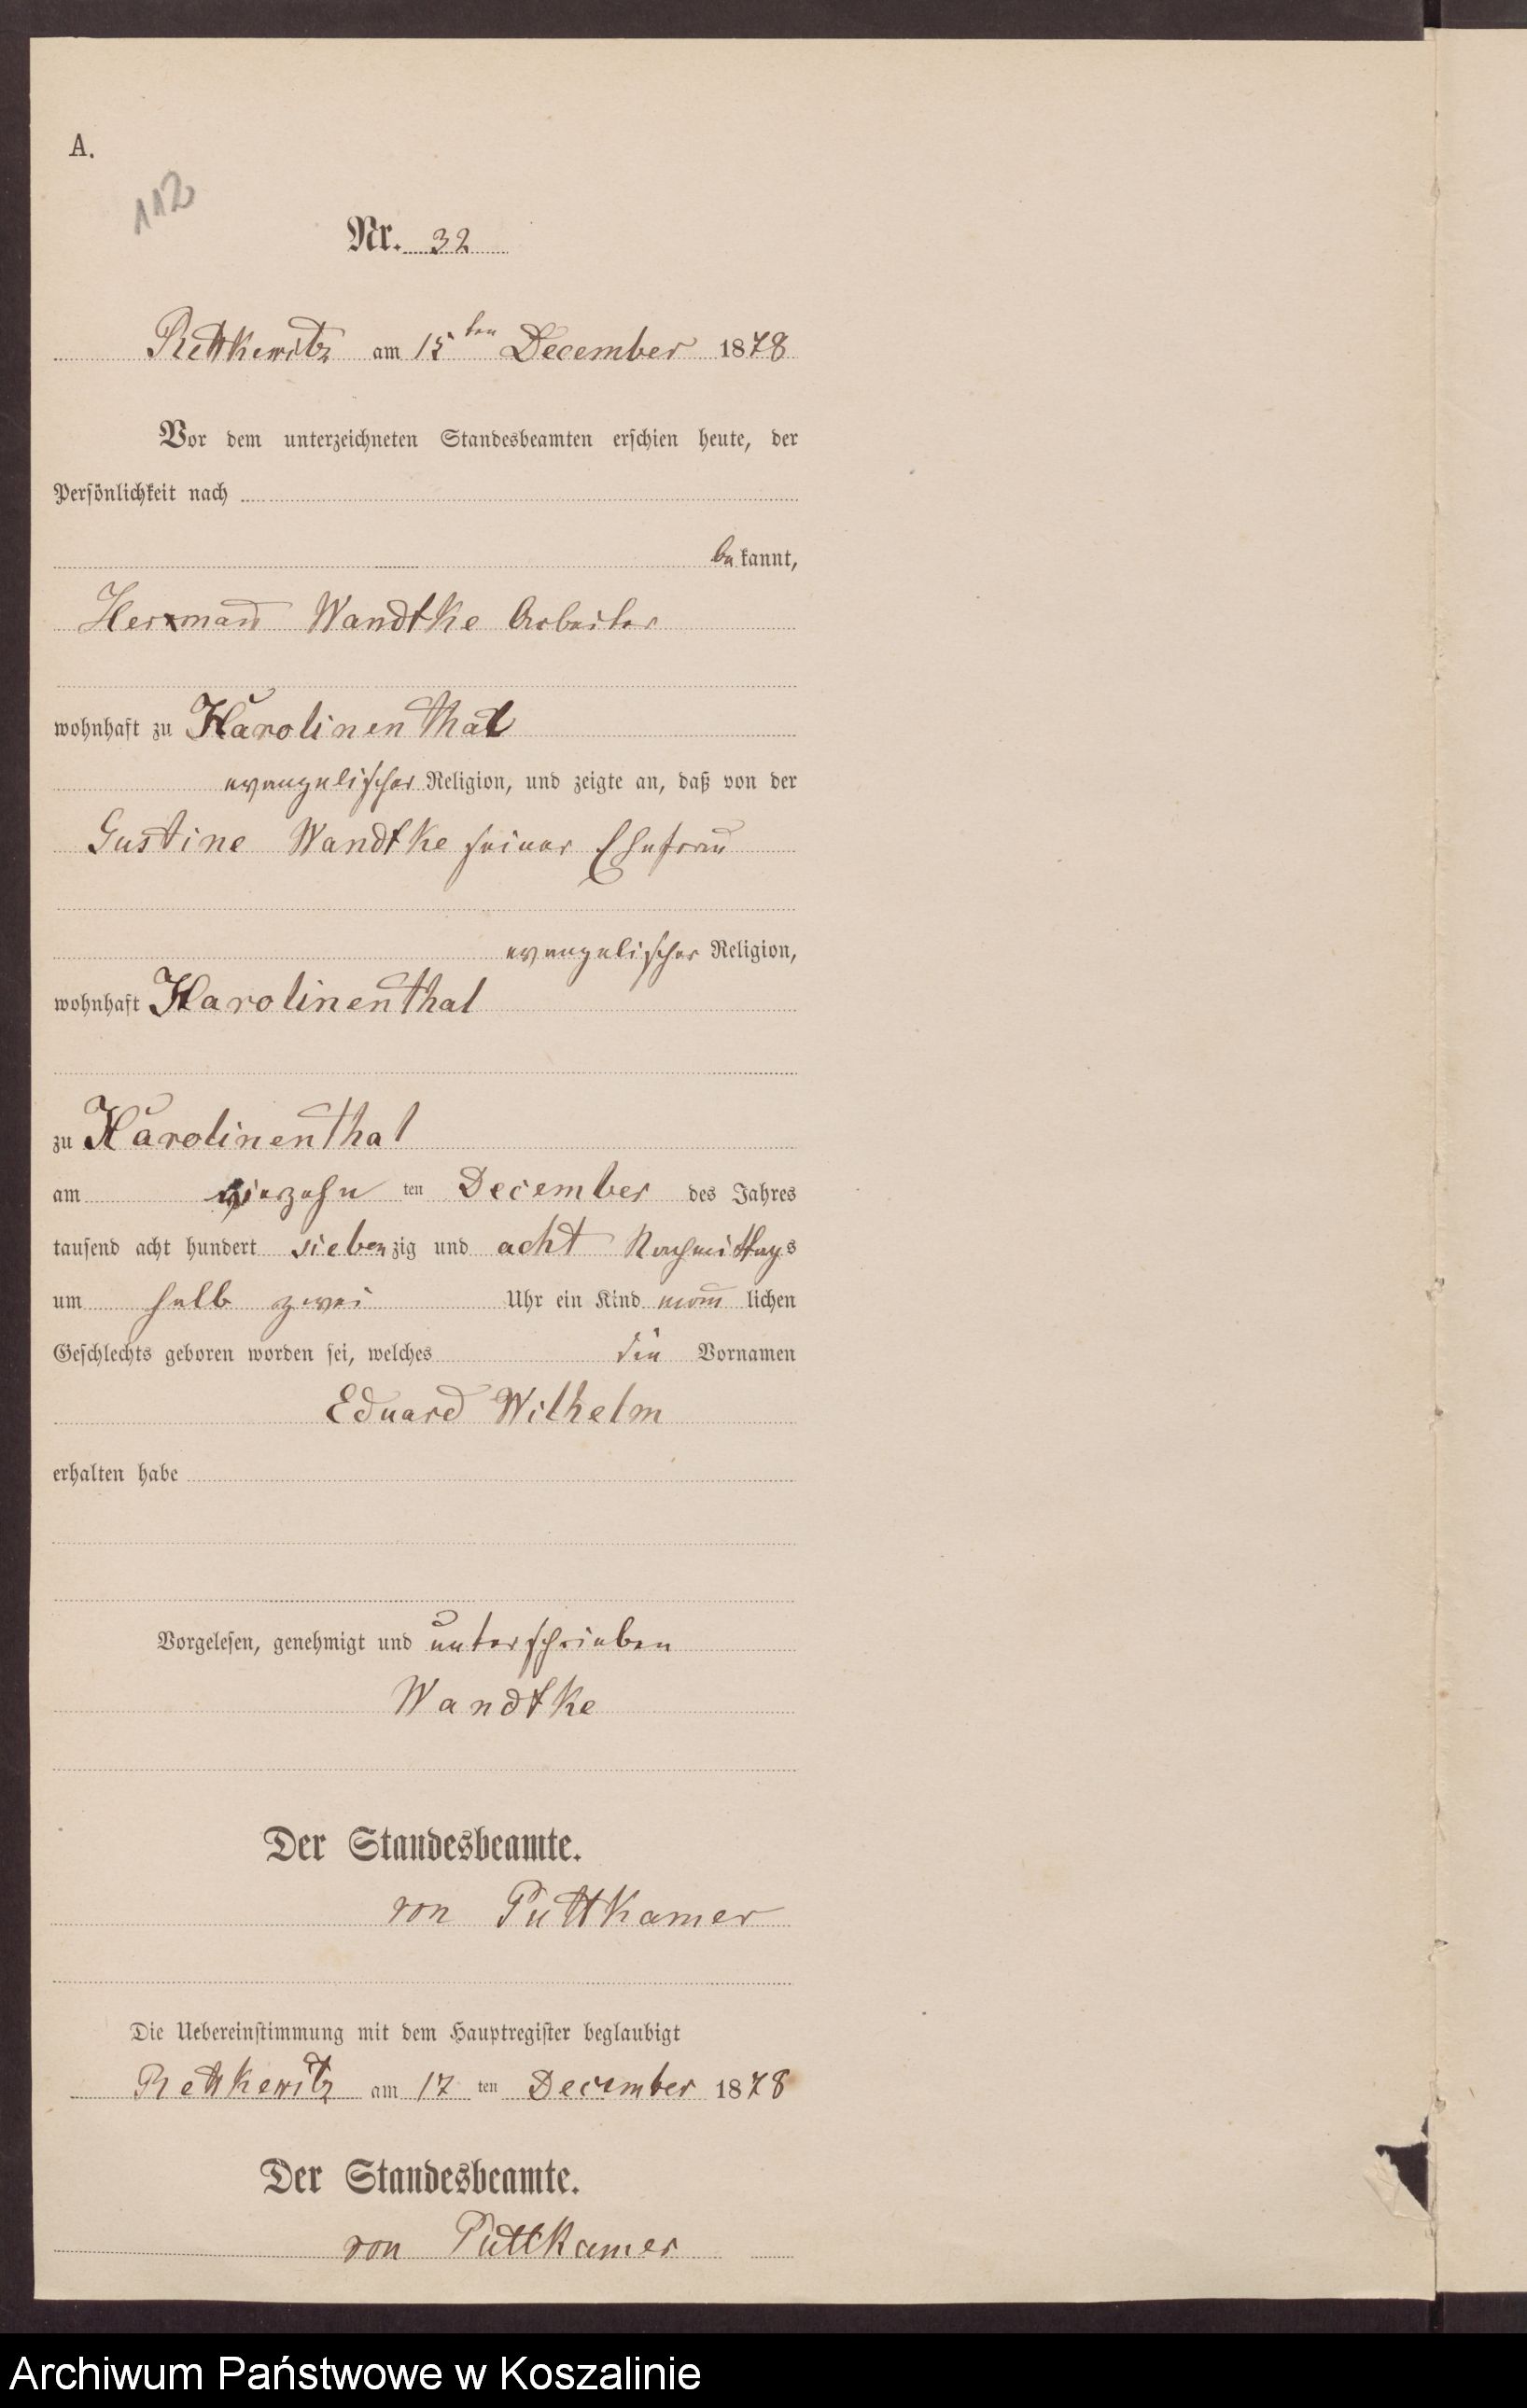 A.
112
Nr. 32
Rettkewitz am 15ten December 1878
Vor dem unterzeichneten Standesbeamten erschien heute, der
Persönlichkeit nach
bekannt,
Herrmann Wandtke Arbeiter
wohnhaft zu Karolinenthal
evangelischer Religion, und zeigte an, daß von der
Gustine Wandtke seiner Ehefrau
evangelischer Religion,
wohnhaft Karolinenthal
zu Karolinenthal
am vierzehn ten December des Jahres
tausend acht hundert siebenzig und acht Nachmittags
um halb zwei Uhr ein Kind männlichen
Geschlechts geboren worden sei, welches die Vornamen
Eduard Wilhelm
erhalten habe
Vorgelesen, genehmigt und unterschrieben
Wandtke
Der Standesbeamte.
von Puttkamer
Die Uebereinstimmung mit dem Hauptregister beglaubigt
Rettkewitz am 17 ten December 1878
Der Standesbeamte.
von Puttkamer
Archiwum Państwowe w Koszalinie